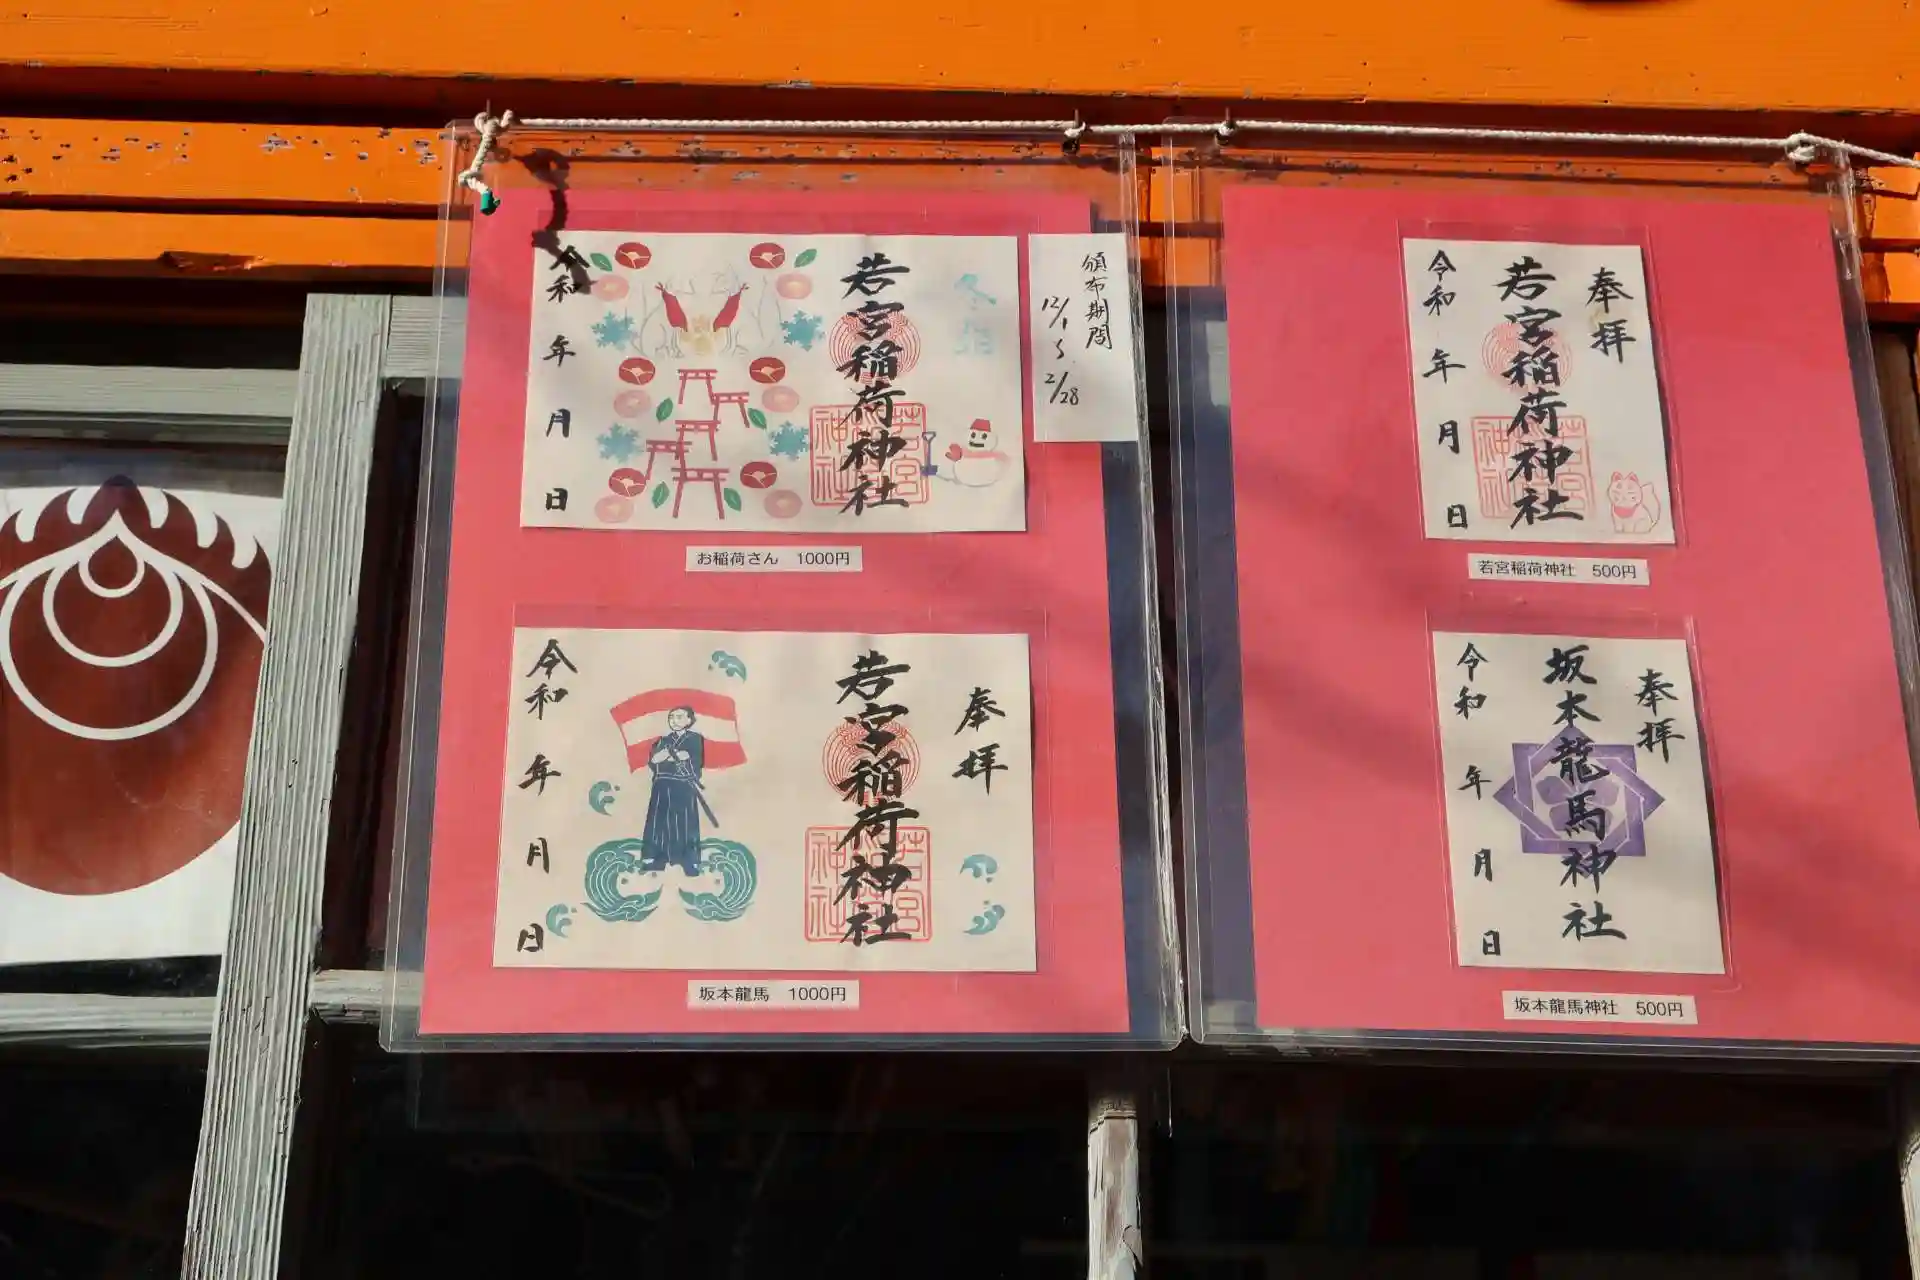 冬詣
若宮稲荷神社
若宮
稲荷
神社
令和 年 月 日
お稲荷さん 1000円
頒布期間
12/1〜2/28
奉拝
若宮稲荷神社
若宮
稲荷
神社
令和 年 月 日
坂本龍馬 1000円
奉拝
若宮稲荷神社
若宮
稲荷
神社
令和 年 月 日
若宮稲荷神社 500円
奉拝
坂本龍馬神社
令和 年 月 日
坂本龍馬神社 500円